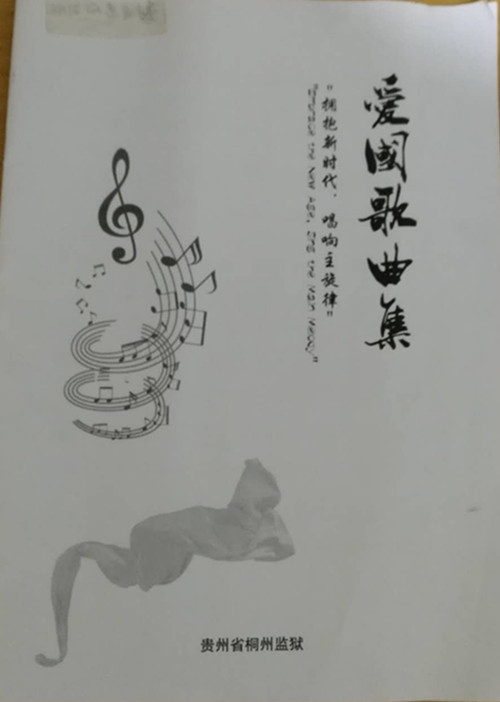 愛國歌曲集
"拥抱新时代，唱响主旋律"
"Embrace the New Age, Sing the Main Melody"
贵州省桐州监狱